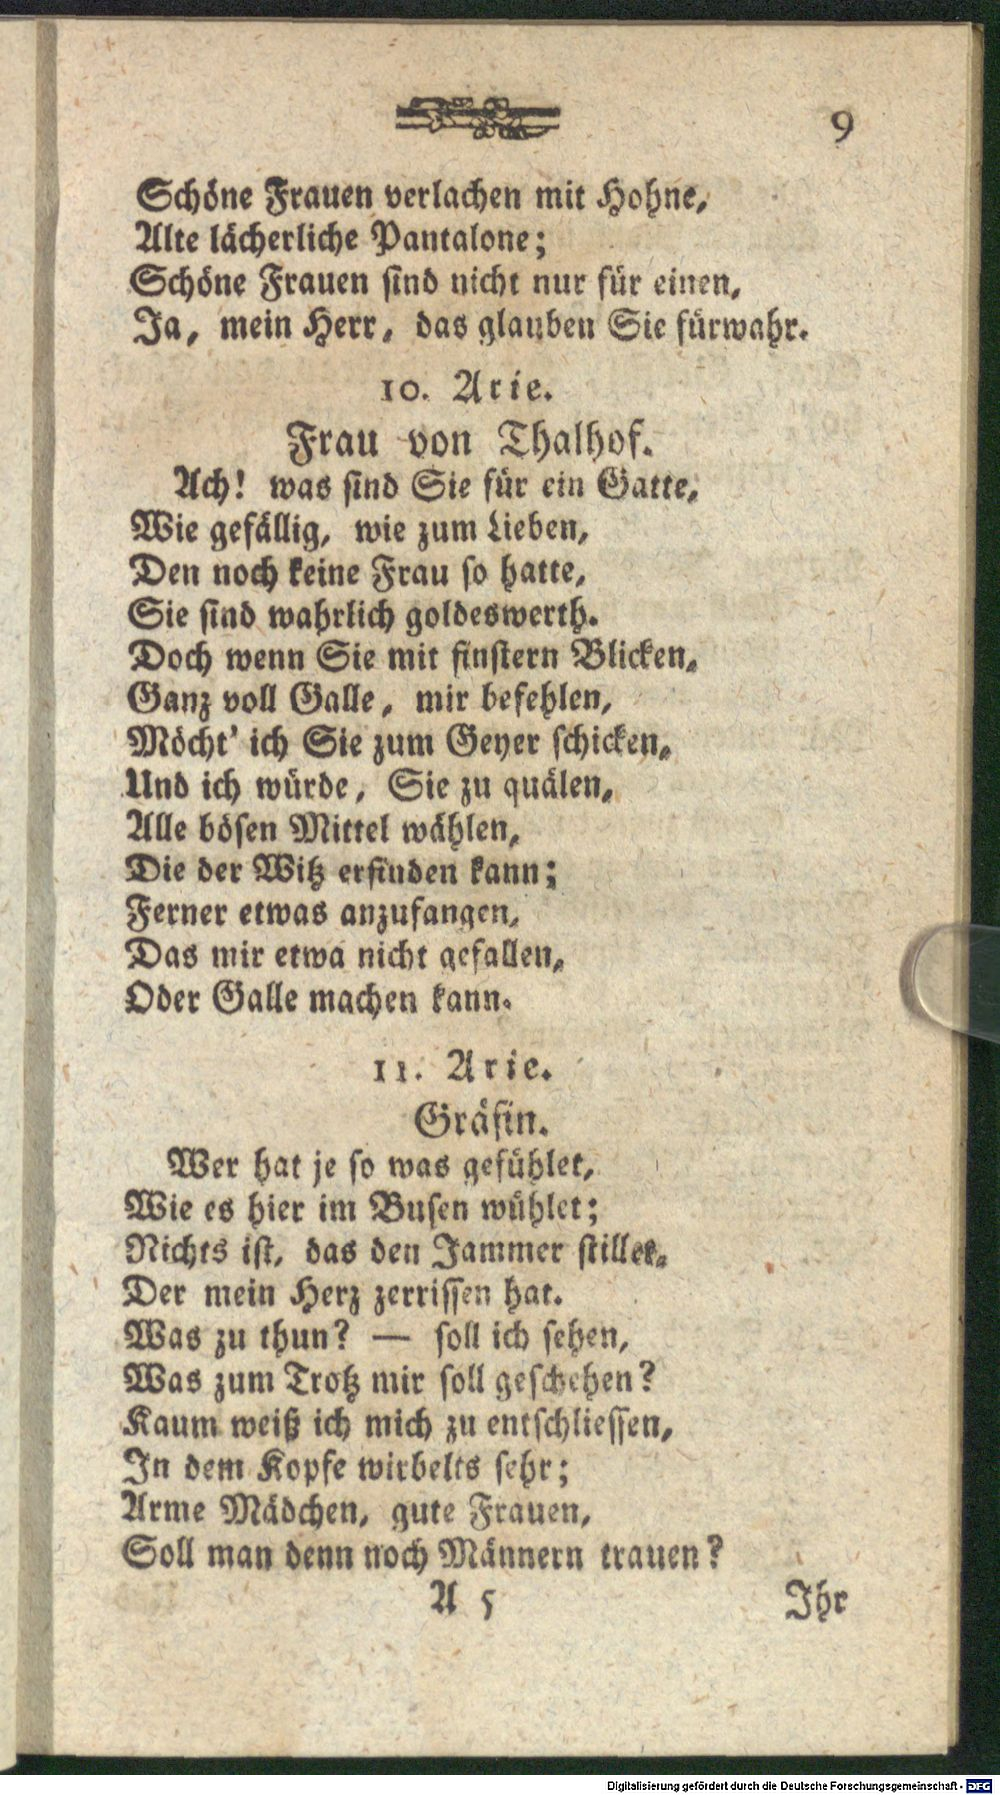 9
Schöne Frauen verlachen mit Hohne,
Alte lächerliche Pantalone;
Schöne Frauen sind nicht nur für einen,
Ja, mein Herr, das glauben Sie fürwahr.
10. Arie.
Frau von Thalhof.
Ach! was sind Sie für ein Gatte,
Wie gefällig, wie zum Lieben,
Den noch keine Frau so hatte,
Sie sind wahrlich goldeswerth.
Doch wenn Sie mit finstern Blicken,
Ganz voll Galle, mir befehlen,
Möcht' ich Sie zum Geyer schicken,
Und ich würde, Sie zu quälen,
Alle bösen Mittel wählen,
Die der Witz erfinden kann;
Ferner etwas anzufangen,
Das mir etwa nicht gefallen,
Oder Galle machen kann.
11. Arie.
Gräfin.
Wer hat je so was gefühlet,
Wie es hier im Busen wühlet;
Nichts ist, das den Jammer stillet,
Der mein Herz zerrissen hat.
Was zu thun? — soll ich sehen,
Was zum Trotz mir soll geschehen?
Kaum weiß ich mich zu entschliessen,
In dem Kopfe wirbelts sehr;
Arme Mädchen, gute Frauen,
Soll man denn noch Männern trauen?
A 5 Ihr
Digitalisierung gefördert durch die Deutsche Forschungsgemeinschaft - DFG